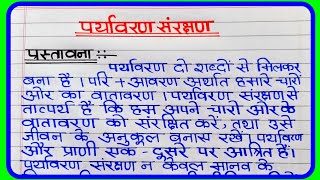 पर्यावरण संरक्षण
प्रस्तावना :-
पर्यावरण दो शब्दों से मिलकर
बना हैं । परि + आवरण अर्थात हमारे चारों
ओर का वातावरण । पर्यावरण संरक्षण से
तात्पर्य हैं कि हम अपने चारों ओर के
वातावरण को संरक्षित करें, तथा उसे
जीवन के अनुकूल बनाए रखें। पर्यावरण
और प्राणी एक - दूसरे पर आश्रित हैं।
पर्यावरण संरक्षण न केवल मानव के